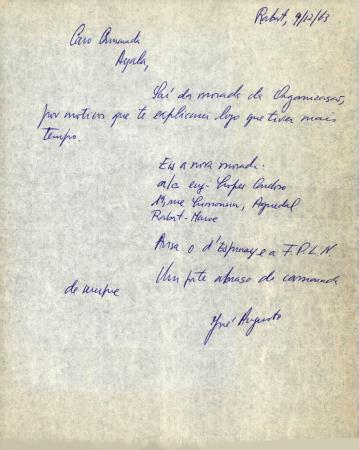 Rabat, 9/12/63
Caro Camarada
Ayala,
Saí da morada da Organização,
por motivos que te explicarei logo que tiver mais
tempo.
Eis a nova morada:
a/c eng. Lopes Cardoso
rue Agdal
Rabat - Maroc
Avisa o d'Espinay e a F.P.L.N
Um forte abraço de camarada
de sempre
José Augusto